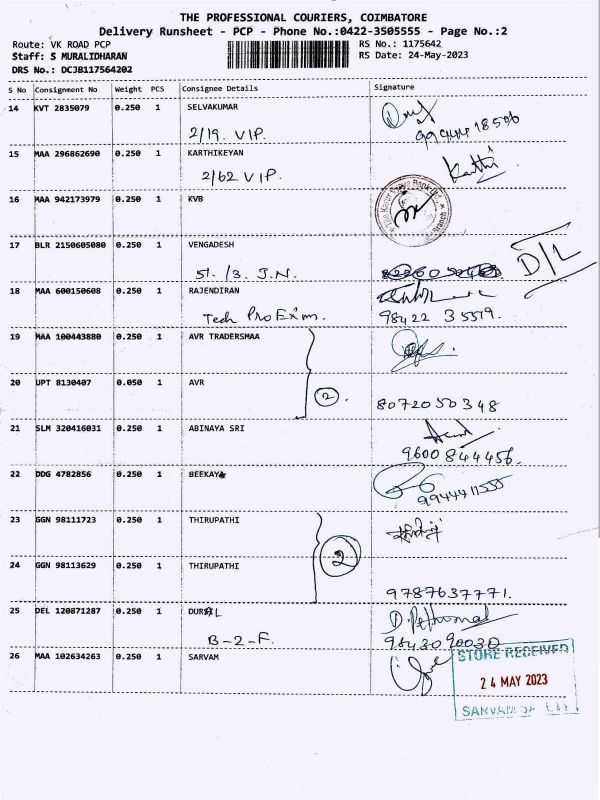 THE PROFESSIONAL COURIERS, COIMBATORE
Delivery Runsheet - PCP - Phone No.:0422-3505555 - Page No.:2
Route: VK ROAD PCP RS No.: 1175642
Staff: S MURALIDHARAN RS Date: 24-May-2023
DRS No.: DCJB117564202
S No Consignment No Weight PCS Consignee Details Signature
14 KVT 2835079 0.250 1 SELVAKUMAR
2/19. VIP.
15 MAA 296862690 0.250 1 KARTHIKEYAN Karthi
2/62 VIP.
16 MAA 942173979 0.250 1 KVB
17 BLR 2150605080 0.250 1 VENGADESH D/L
51./3. J.N.
18 MAA 600150608 0.250 1 RAJENDIRAN
Tech Pro Exim. 98422 35519.
19 MAA 100443880 0.250 1 AVR TRADERSMAA
20 UPT 8130407 0.050 1 AVR 2.
8072050348
21 SLM 320416031 0.250 1 ABINAYA SRI
9600844456.
22 DDG 4782856 0.250 1 BEEKAY
9944411555
23 GGN 98111723 0.250 1 THIRUPATHI
2
24 GGN 98113629 0.250 1 THIRUPATHI
9787637771.
25 DEL 120871287 0.250 1
B-2-F. 9843090030
26 MAA 102634263 0.250 1 SARVAM
STORE RECEIVED
24 MAY 2023